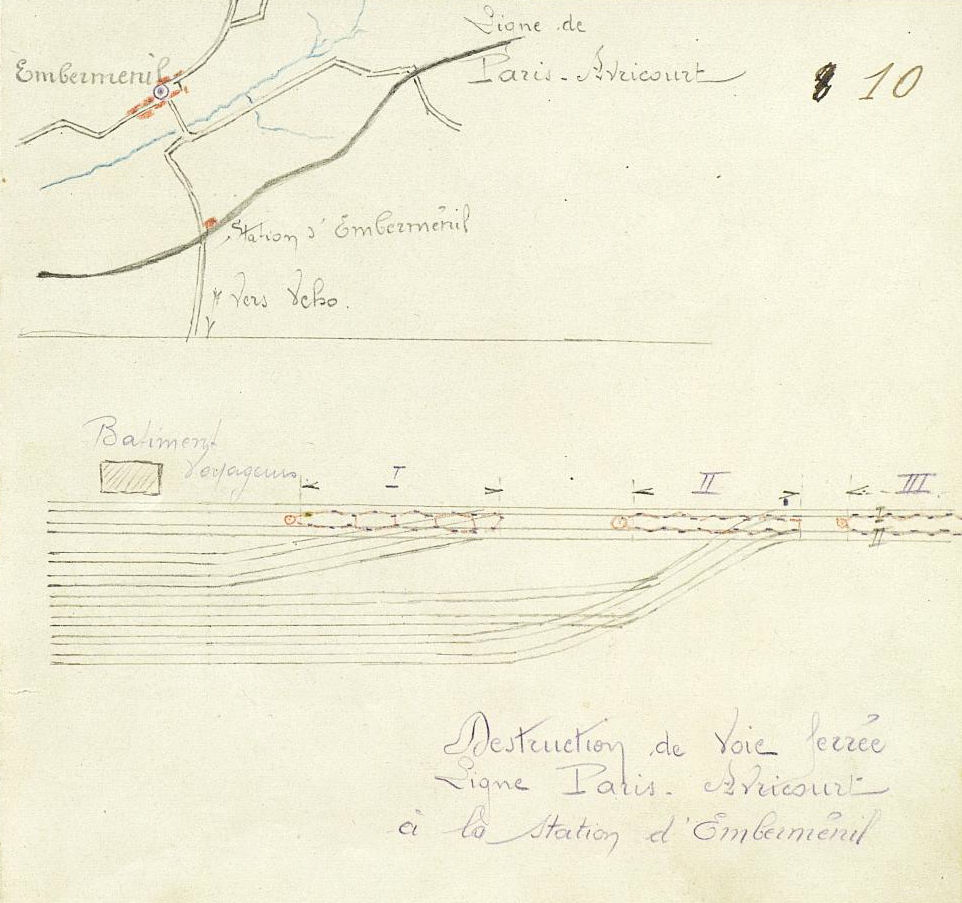 Ligne de
Paris-Avricourt
Emberménil
10
Station d'Emberménil
Vers Veho.
Batiment
Voyageurs
I II III
I
II
Destruction de Voie ferrée
Ligne Paris-Avricourt
à la station d'Emberménil